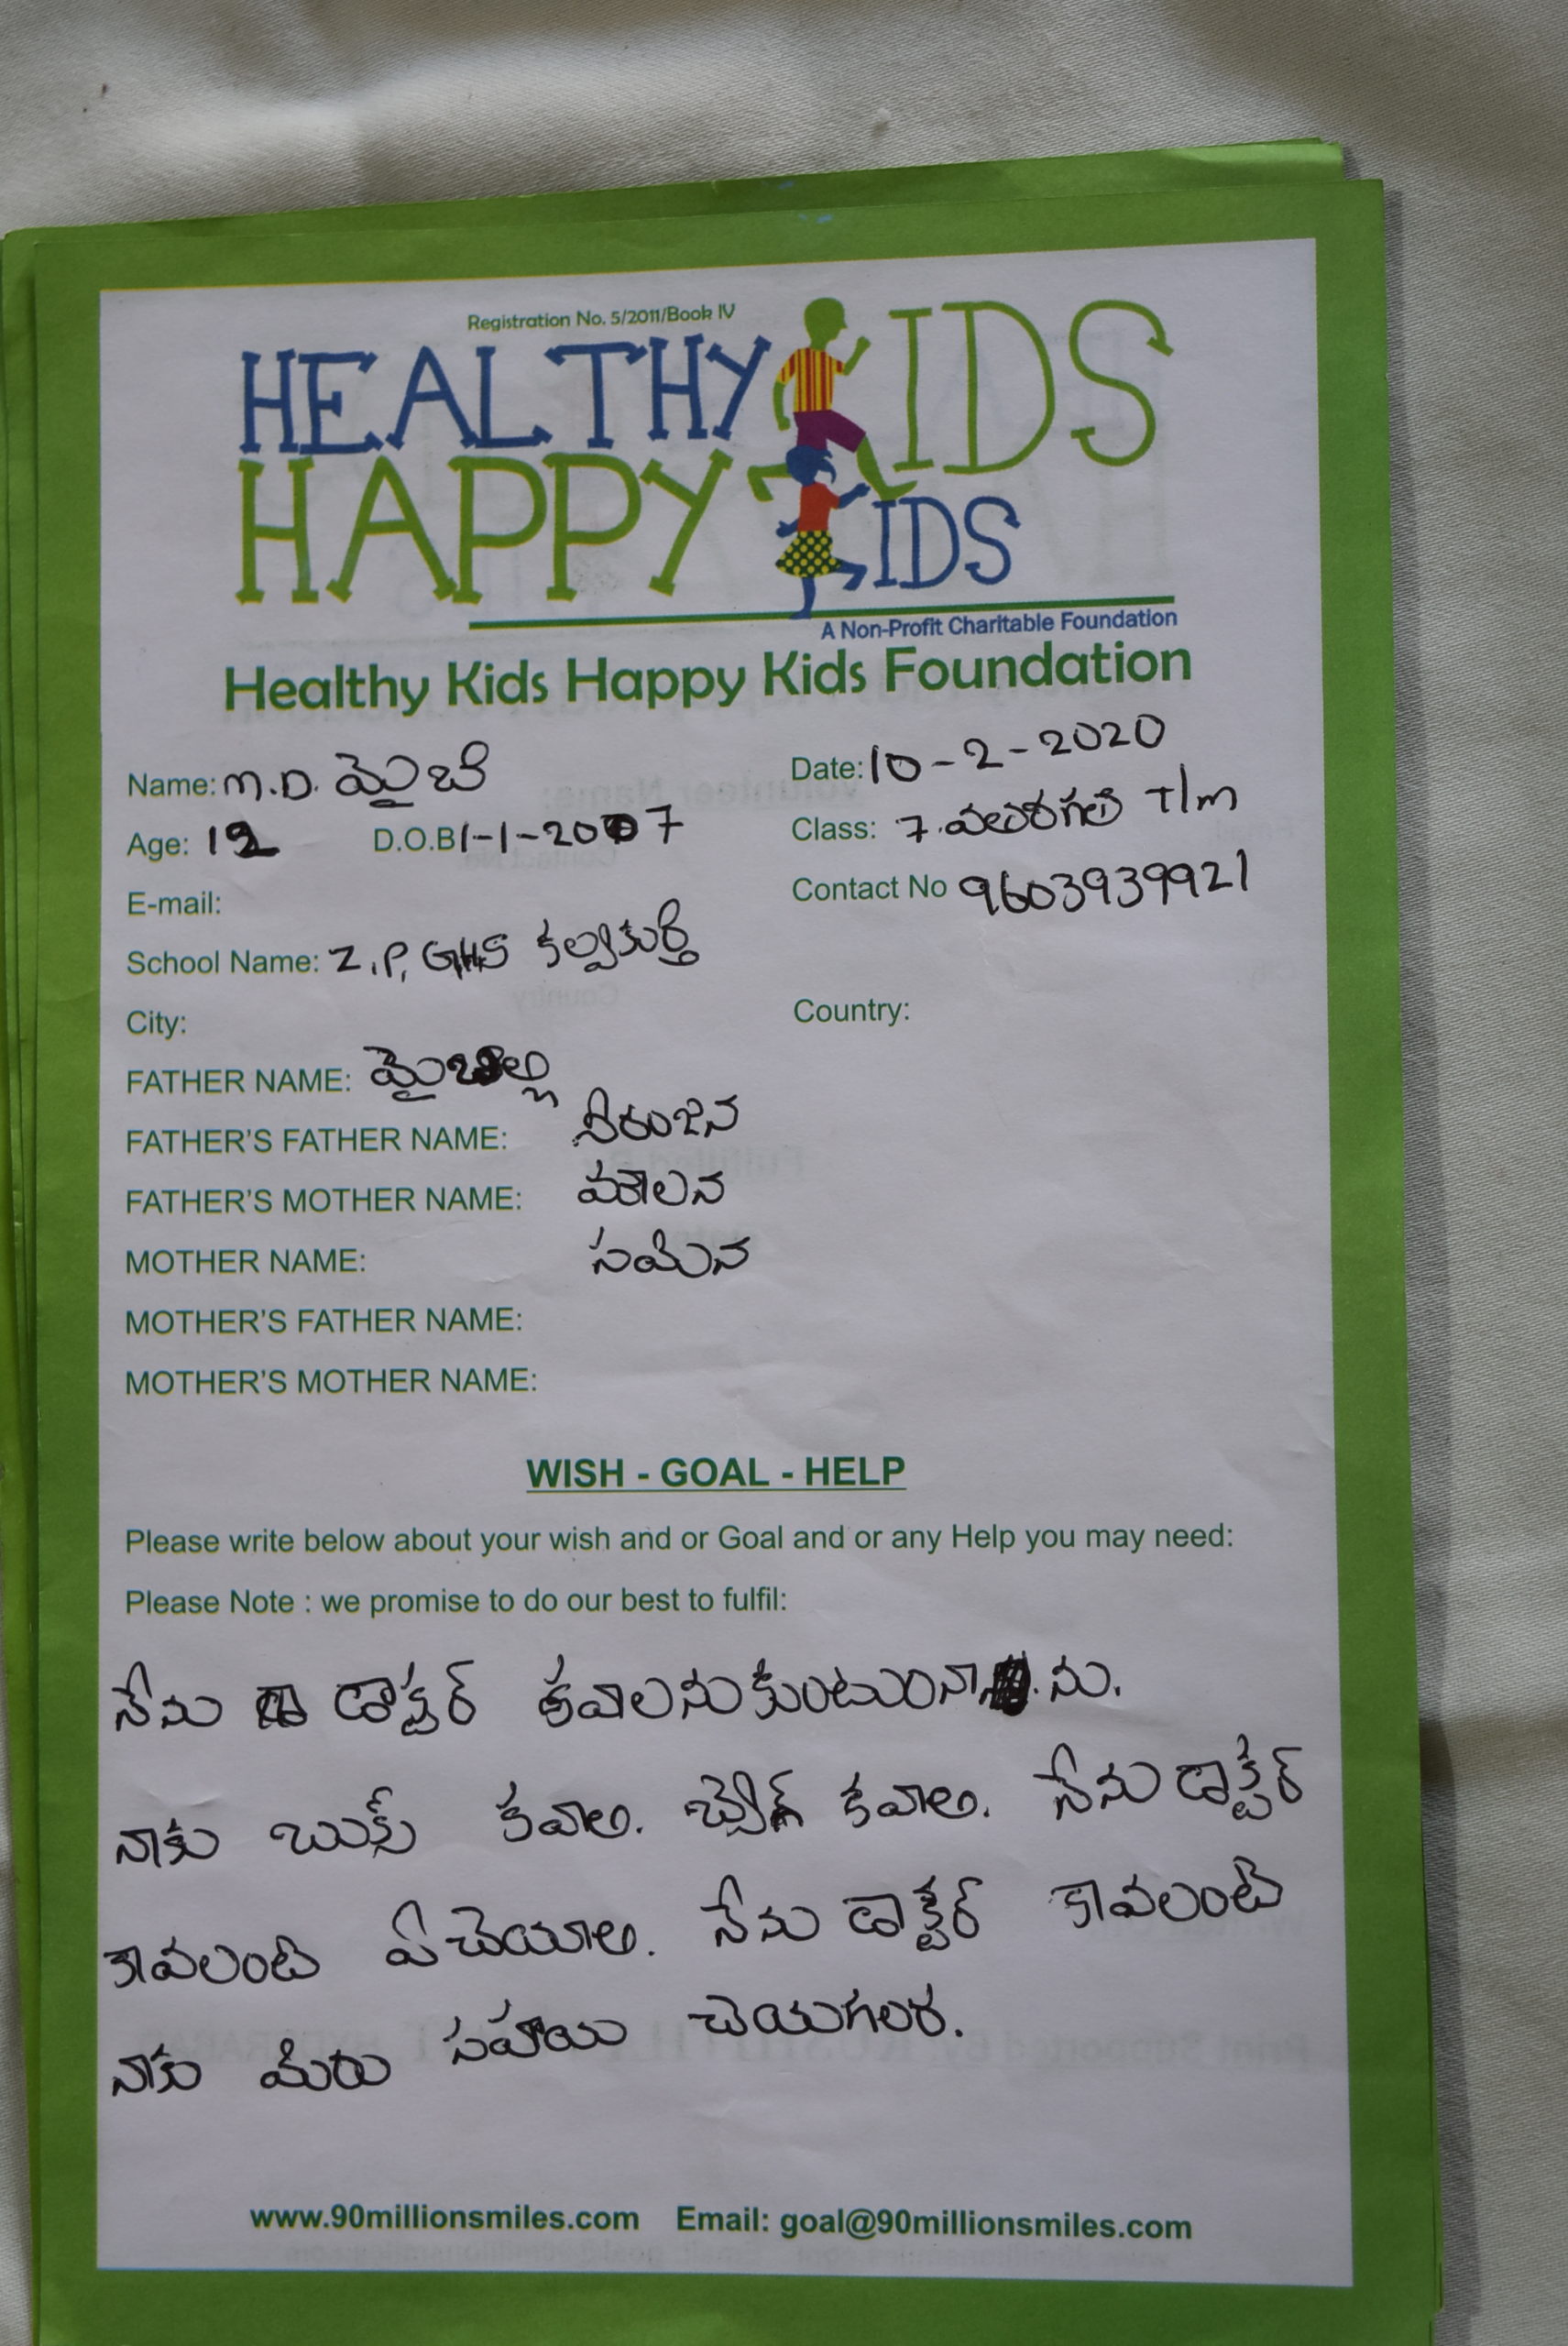 Registration No. 5/2011/Book IV
HEALTHY KIDS
HAPPY KIDS
A Non-Profit Charitable Foundation
Healthy Kids Happy Kids Foundation
Name: M.D. మైబె
Date: 10-2-2020
Age: 12 D.O.B 1-1-2007
Class: 7. T/m
E-mail:
Contact No 9603939921
School Name: Z.P, GHS కల్వకుర్తి
City:
Country:
FATHER NAME:
FATHER'S FATHER NAME:
FATHER'S MOTHER NAME:
MOTHER NAME: సమీన
MOTHER'S FATHER NAME:
MOTHER'S MOTHER NAME:
WISH - GOAL - HELP
Please write below about your wish and or Goal and or any Help you may need:
Please Note : we promise to do our best to fulfil:
నేను డాక్టర్ కవాలనుకుంటుంనాను.
నాకు బుక్స్ కవాలి. బ్యాగ్ కవాలి. నేను డాక్టేర్
కావలంటె ఏ చెయాలి. నేను డాక్టేర్ కావలంటె
నాకు మీరు సహయి చెయగలర.
www.90millionsmiles.com Email: goal@90millionsmiles.com